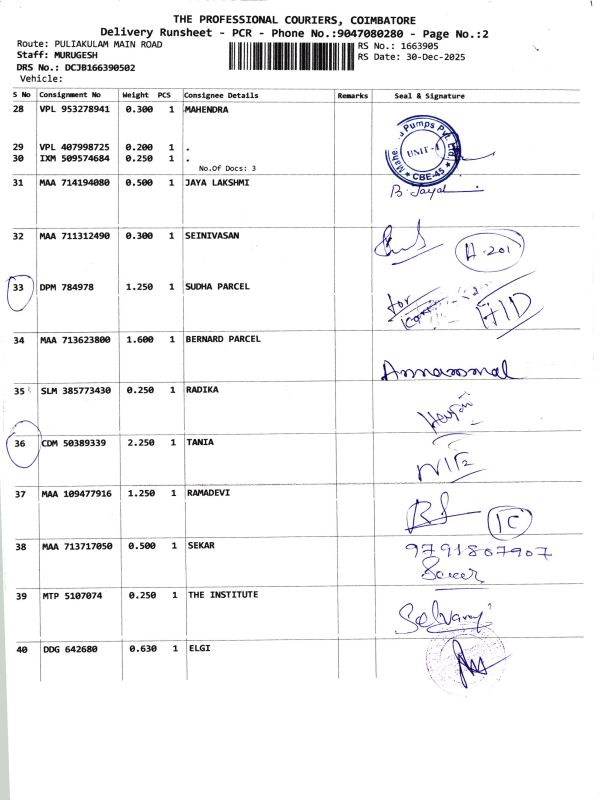 THE PROFESSIONAL COURIERS, COIMBATORE
Delivery Runsheet - PCR - Phone No.:9047080280 - Page No.:2
Route: PULIAKULAM MAIN ROAD RS No.: 1663905
Staff: MURUGESH RS Date: 30-Dec-2025
DRS No.: DCJB166390502
Vehicle:
S No Consignment No Weight PCS Consignee Details Remarks Seal & Signature
28 VPL 953278941 0.300 1 MAHENDRA
29 VPL 407998725 0.200 1 .
30 IXM 509574684 0.250 1 .
No.Of Docs: 3
Pumps Pvt Ltd
UNIT-1
CBE-45
31 MAA 714194080 0.500 1 JAYA LAKSHMI B. Jayal
32 MAA 711312490 0.300 1 SEINIVASAN H-201
33 DPM 784978 1.250 1 SUDHA PARCEL for
34 MAA 713623800 1.600 1 BERNARD PARCEL
35 SLM 385773430 0.250 1 RADIKA
36 CDM 50389339 2.250 1 TANIA
37 MAA 109477916 1.250 1 RAMADEVI 1C
38 MAA 713717050 0.500 1 SEKAR 9791807907
39 MTP 5107074 0.250 1 THE INSTITUTE Selvaraj
40 DDG 642680 0.630 1 ELGI